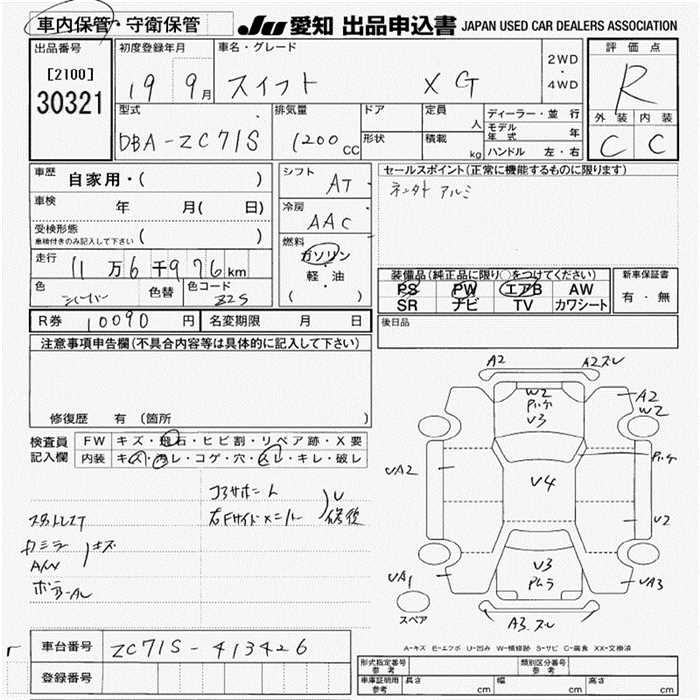 車内保管・守衛保管
JU 愛知 出品申込書 JAPAN USED CAR DEALERS ASSOCIATION
出品番号 初度登録年月 車名・グレード 2WD ・ 4WD 評価点
[2100] 30321 19 9月 スイフト XG R
型式 排気量 ドア 定員 人 ディーラー・並行
DBA-ZC71S 1200 CC 形状 積載 kg モデル年式 年
ハンドル 左・右
外装 内装
C C
車歴 自家用・( )
シフト AT
セールスポイント(正常に機能するものに限ります)
車検 年 月( 日)
冷房 AAC
アルミ
受検形態
車検付きのみ記入して下さい ( )
燃料 ガソリン・軽・油 ( )
走行 11万6千976km
装備品(純正品に限り○をつけてください) 新車保証書
PS PW エアB AW 有・無
SR ナビ TV カワシート
色 シルバー 色替 色コード Z2S
R券 10090 円 名変期限 月 日
後日品
注意事項申告欄(不具合内容等は具体的に記入して下さい)
修復歴 有 (箇所 )
検査員記入欄 FW キズ・飛石・ヒビ割・リペア跡・X要
内装 キズ・汚レ・コゲ・穴・スレ・キレ・破レ
コアサポート
右Fサイドメンバー U 修後
キズ
A/N
A2 A2スレ
W2 A2
V3 W2
UA2 V4 U2
V3
UA1 UA3
スペア A3スレ
A-キズ E-エクボ U-凹み W-補修跡 S-サビ C-腐食 XX-交換済
車台番号 ZC71S-413426
登録番号
形式指定番号 参考 類別区分番号 参考
車庫証明用 参考 長さ cm 幅 cm 高さ cm